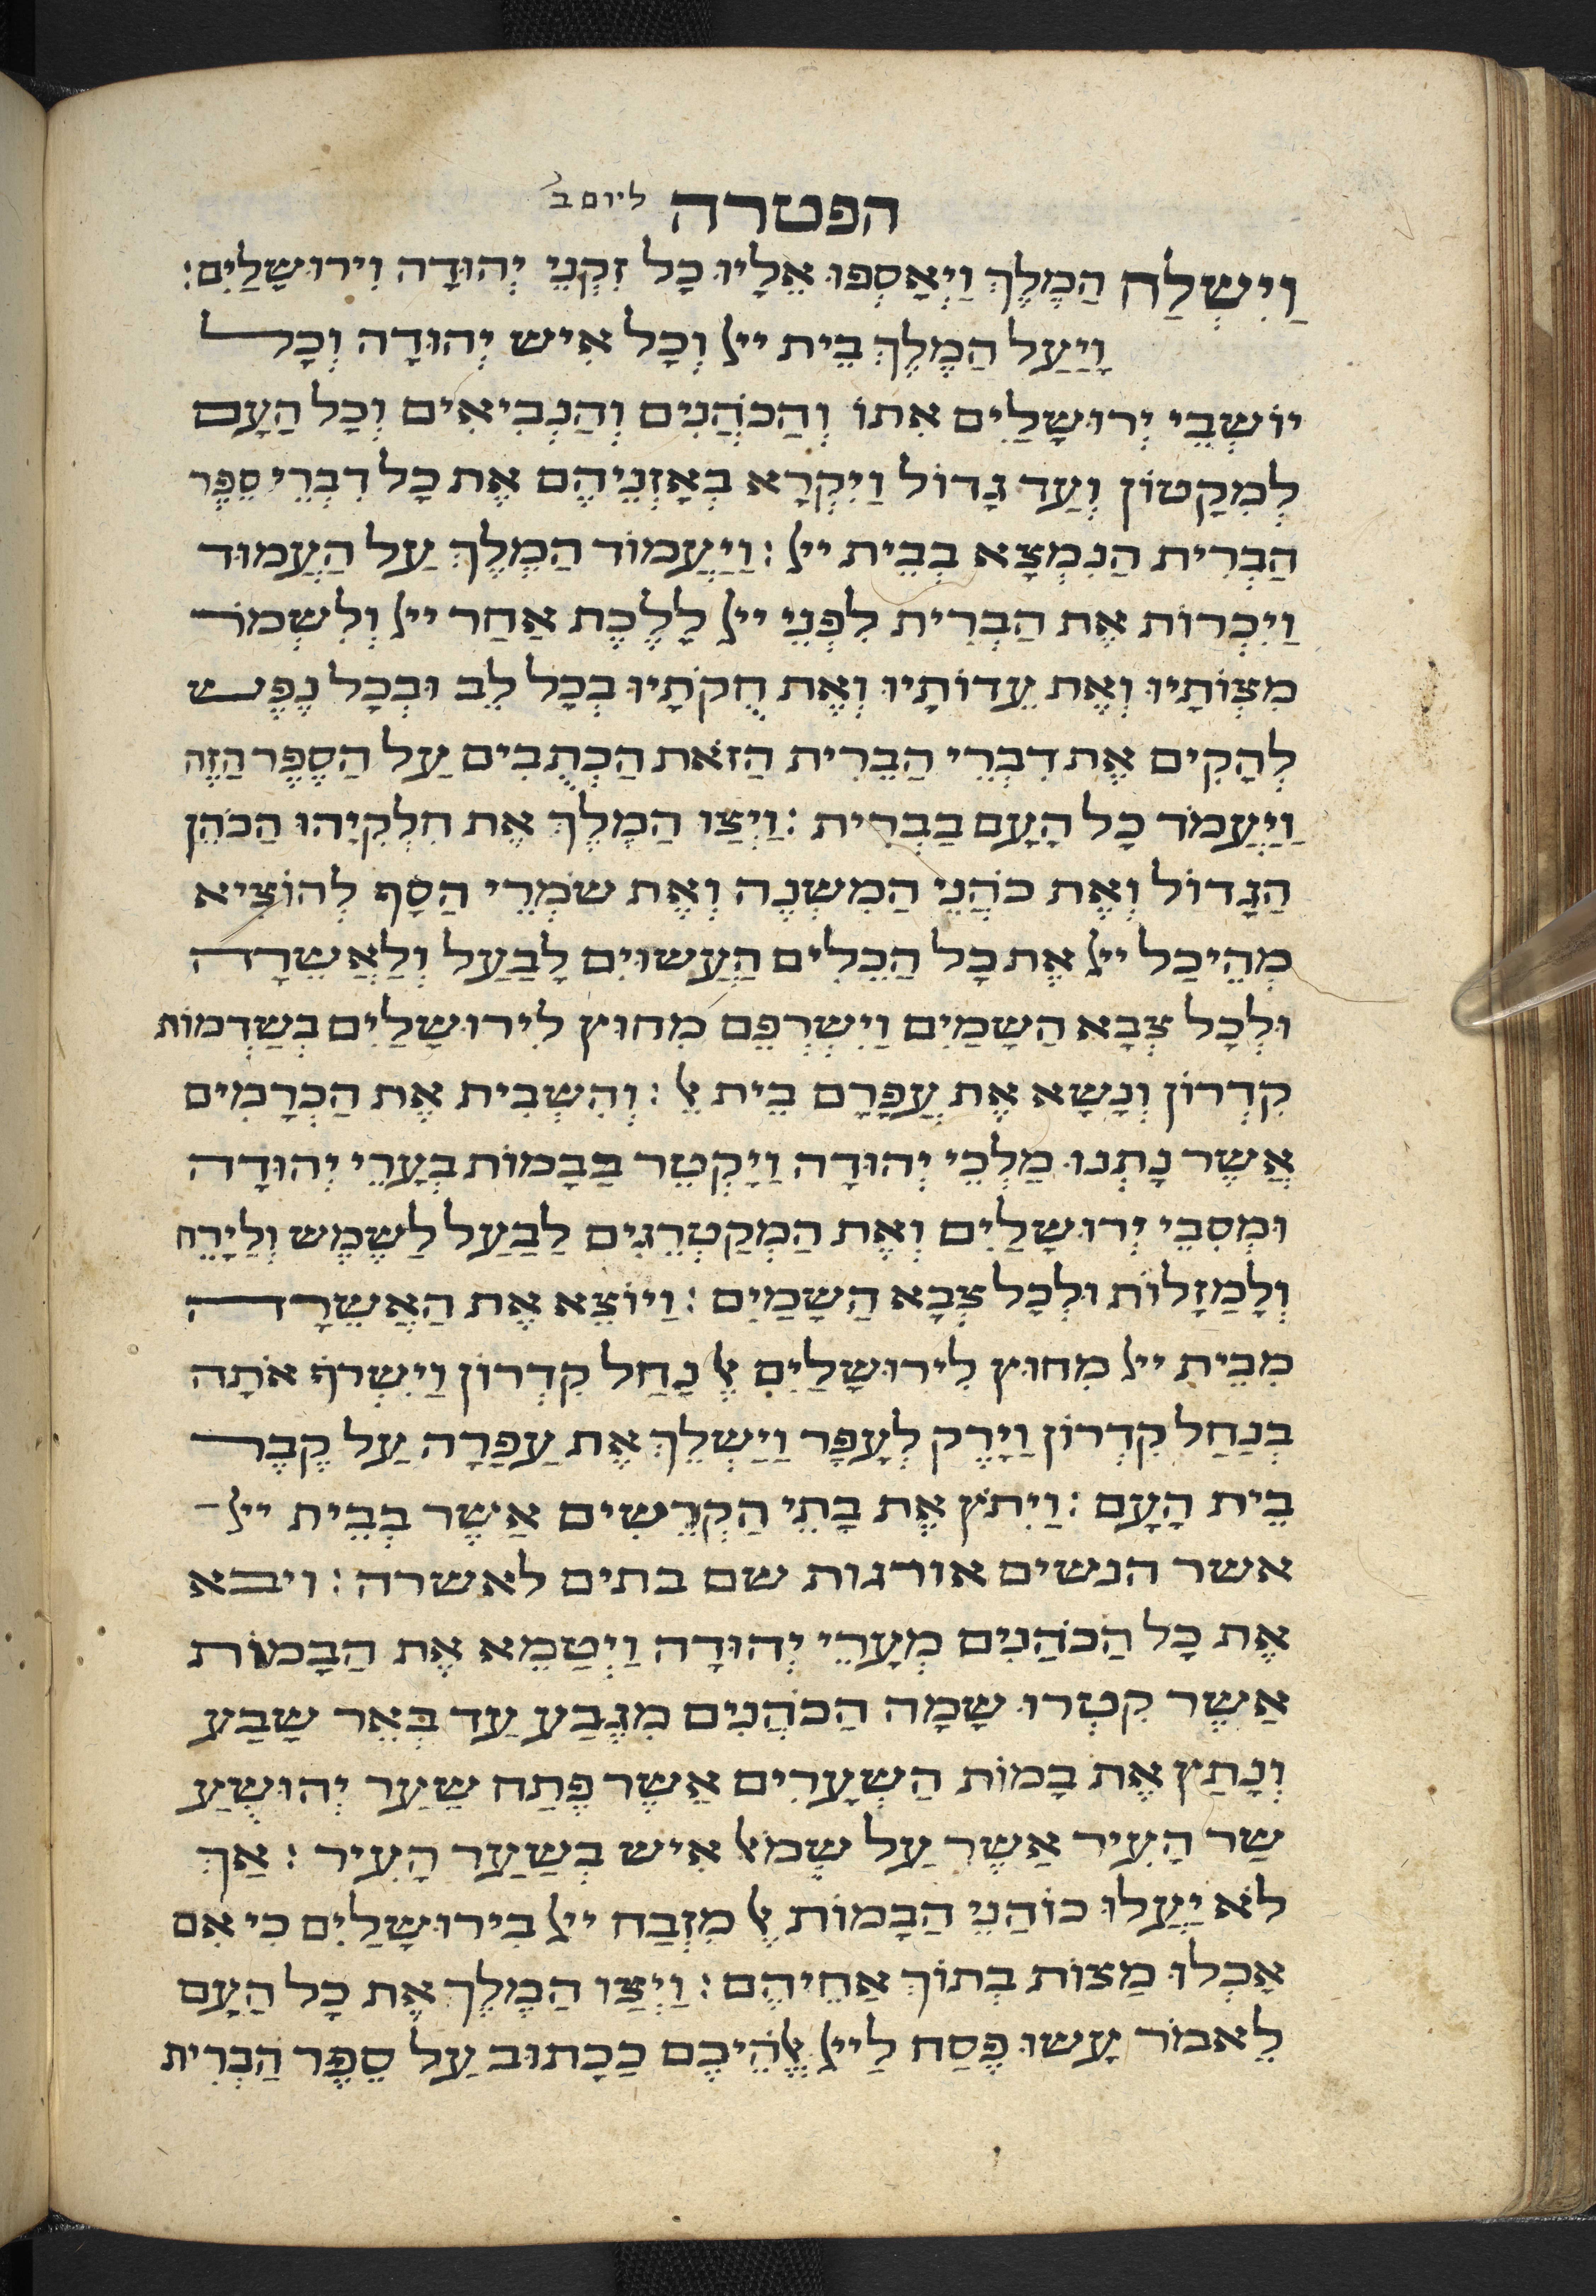 הפטרה ליום ב'
וַיִשְלַח הַמֶלֶךְ וַיְאָסְפוּ אֵלָיו כָל זִקְנֵי יְהוּדָה וִירוּשָלַיִם:
וָיַעַל הַמֶלֶךְ בֵית ייל וְכָל אִיש יְהוּדָה וְכָל
יוֹשְבֵי יְרוּשָלַיִם אִתוֹ וְהַכֹהֲנִים וְהַנְבִיאִים וְכָל הַעָם
לְמִקָטוֹן וְעַד גָדוֹל וַיִקְרָא בְאָזְנֵיהֶם אֶת כָל דִבְרֵי סֵפֶר
הַבְרִית הַנִמְצָא בְבֵית ייל: וַיַעֲמוֹד הַמֶלֶךְ עַל הַעֲמוּד
וַיִכְרוֹת אֶת הַבְרִית לִפְנֵי ייל לָלֶכֶת אַחַר ייל וְלִשְמֹר
מִצְוֹתָיו וְאֶת עֵדוֹתָיו וְאֶת חֻקֹתָיו בְכָל לֵב וּבְכָל נֶפֶש
לְהָקִים אֶת דִבְרֵי הַבֵרִית הַזֹאת הַכְתֻבִים עַל הַסֶפֶר הַזֶה
וַיַעֲמֹד כָל הָעָם בַבְרִית: וַיְצַו הַמֶלֶךְ אֶת חִלְקִיָהוּ הַכֹהֵן
הַגָדוֹל וְאֶת כֹהֲנֵי הַמִשְנֶה וְאֶת שֹמְרֵי הַסָף לְהוֹצִיא
מְהֵיכַל ייל אֶת כָל הַכֵלִים הַעֲשוּיִם לָבַעַל וְלַאֲשֵרָה
וּלְכָל צְבָא הַשָמַיִם וַיִשְרְפֵם מִחוּץ לִירוּשָלַיִם בְשַדְמוֹת
קִדְרוֹן וְנָשָא אֶת עֲפָרָם בֵית אֵל: וְהִשְבִית אֶת הַכְרָמִים
אֲשֶר נָתְנוּ מַלְכֵי יְהוּדָה וַיָקְטֵר בַבָמוֹת בְעָרֵי יְהוּדָה
וּמְסִבֵי יְרוּשָלַיִם וְאֶת הַמְקַטְרְגִים לַבַעַל לַשֶמֶש וְלַיָרֵחַ
וְלָמַזָלוֹת וּלְכָל צְבָא הַשָמַיִם: וַיוֹצֵא אֶת הַאֲשֵרָה
מִבֵית ייל מִחוּץ לִירוּשָלַיִם אֶל נַחַל קִדְרוֹן וַיִשְרֹף אֹתָה
בְנַחַל קִדְרוֹן וַיָדֶק לְעָפָר וַיַשְלֵךְ אֶת עַפָרָה עַל קֶבֶר
בֵית הָעָם: וַיִתֹץ אֶת בָתֵי הַקְדֵשִים אַשֶר בְבֵית ייל
אשר הנשים אורגות שם בתים לאשרה: ויבא
אֶת כָל הַכֹהַנִים מְעָרֵי יְהוּדָה וַיְטַמֵא אֶת הַבָמוֹת
אַשֶר קִטְרוּ שָמָה הַכֹהֲנִים מִגֶבַע עַד בְאֵר שָבַע
וְנָתַץ אֶת בָמוֹת הַשְעָרִים אֵשֶר פֶתַח שַעַר יְהוּשֻעַ
שַר הָעִיר אַשֶר עַל שְמֹאל אִיש בְשַעַר הָעִיר: אַךְ
לֹא יַעֲלוּ כוֹהַנֵי הַבָמוֹת אֶל מִזְבַח ייל בִירוּשָלַיִם כִי אִם
אָכְלוּ מַצוֹת בְתוֹךְ אַחֵיהֶם: וַיְצַו הַמֶלֶךְ אֶת כָל הַעָם
לֵאמֹר עָשוּ פֶסַח לַייל אֱלֹהֵיכֶם כַכָתוּב עַל סֵפֶר הַבְרִית